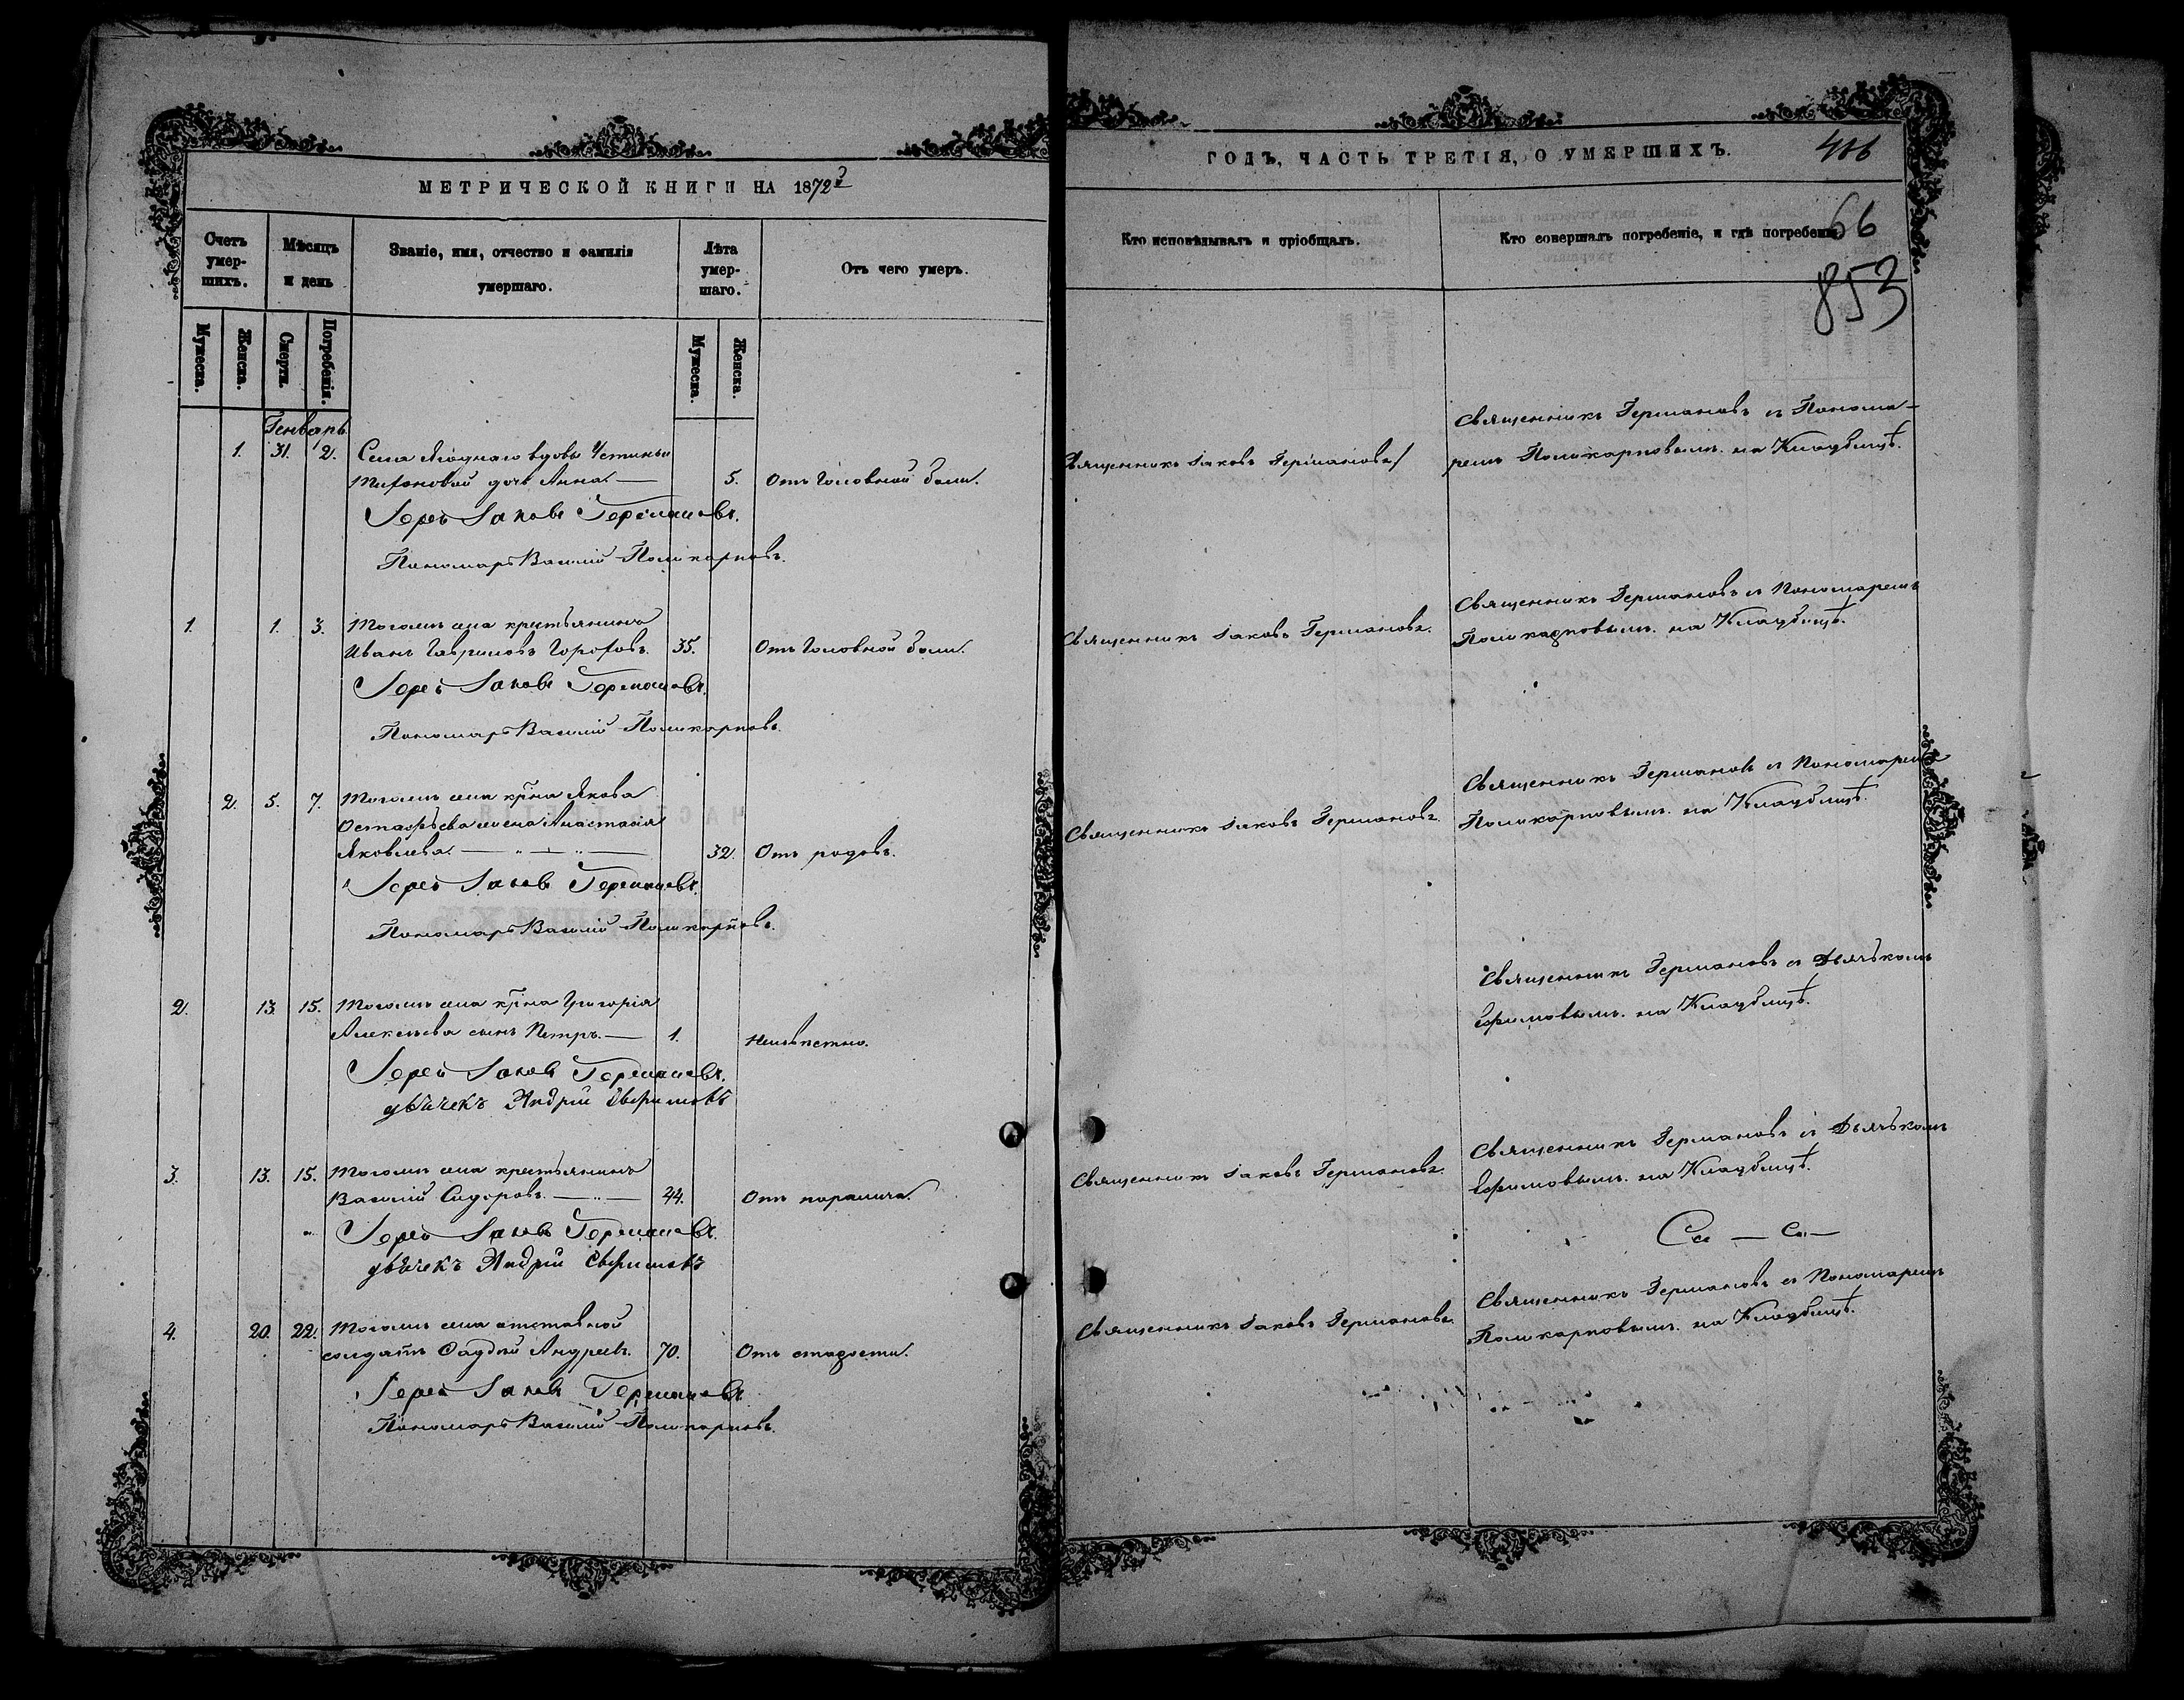 МЕТРИЧЕСКОЙ КНИГИ НА 1872й
Счетъ умер-шихъ.
Мѣсяцъ и день
Званіе, имя, отчество и фамилія умершаго.
Лѣта умер-шаго.
Отъ чего умеръ.
Мужеска.
Женска.
Смерти.
Погребенія.
Мужеска.
Женска.
Генварь
1. 31. 2. Села Ягоднаго вдовы Устиньи
Тихоновой дочь Анна. — 5. Отъ головной боли.
Іерей Іаковъ Германовъ.
Пономарь Василій Поликарповъ.
1. 1. 3. Тогожъ села крестьянинъ
Иванъ Гавриловъ Гороховъ. 35. Отъ головной боли.
Іерей Іаковъ Германовъ.
Пономарь Василій Поликарповъ.
2. 5. 7. Тогожъ села кр̃на Якова
Остафьева жена Анастасія
Яковлева. — „ — „ — 32. Отъ родовъ.
Іерей Іаковъ Германовъ.
Пономарь Василій Поликарповъ.
2. 13. 15. Тогожъ села кр̃на Григорія
Алексѣева сынъ Петръ. — 1. Неизвѣстно.
Іерей Іаковъ Германовъ.
дьячекъ Андрей Ефимовъ
3. 13. 15. Тогожъ села крестьянинъ
Василій Сидоровъ. — „ — 44. Отъ паралича.
Іерей Іаковъ Германовъ.
дьячекъ Андрей Ефимовъ
4. 20. 22. Тогожъ села отставной
солдатъ Фаддѣй Андреевъ. 70. Отъ старости.
Іерей Іаковъ Германовъ
Пономарь Василій Поликарповъ.
ГОДЪ, ЧАСТЬ ТРЕТІЯ, О УМЕРШИХЪ.
66
853
Кто исповѣдывалъ и пріобщалъ.
Кто совершалъ погребеніе, и гдѣ погребены.
Священникъ Германовъ съ Понома-
Священникъ Іаковъ Германовъ
ремъ Поликарповымъ. на Кладбищѣ.
Священникъ Германовъ съ Пономаремъ
Священникъ Іаковъ Германовъ.
Поликарповымъ. на Кладбищѣ.
Священникъ Германовъ съ Пономаремъ
Священникъ Іаковъ Германовъ.
Поликарповымъ. на Кладбищѣ.
Священникъ Германовъ съ Дьячькомъ
Ефимовымъ. на Кладбищѣ.
Священникъ Германовъ съ Дьячькомъ
Священникъ Іаковъ Германовъ.
Ефимовымъ. на Кладбищѣ.
Священникъ Германовъ съ Пономаремъ
Священникъ Іаковъ Германовъ.
Поликарповымъ. на Кладбищѣ.